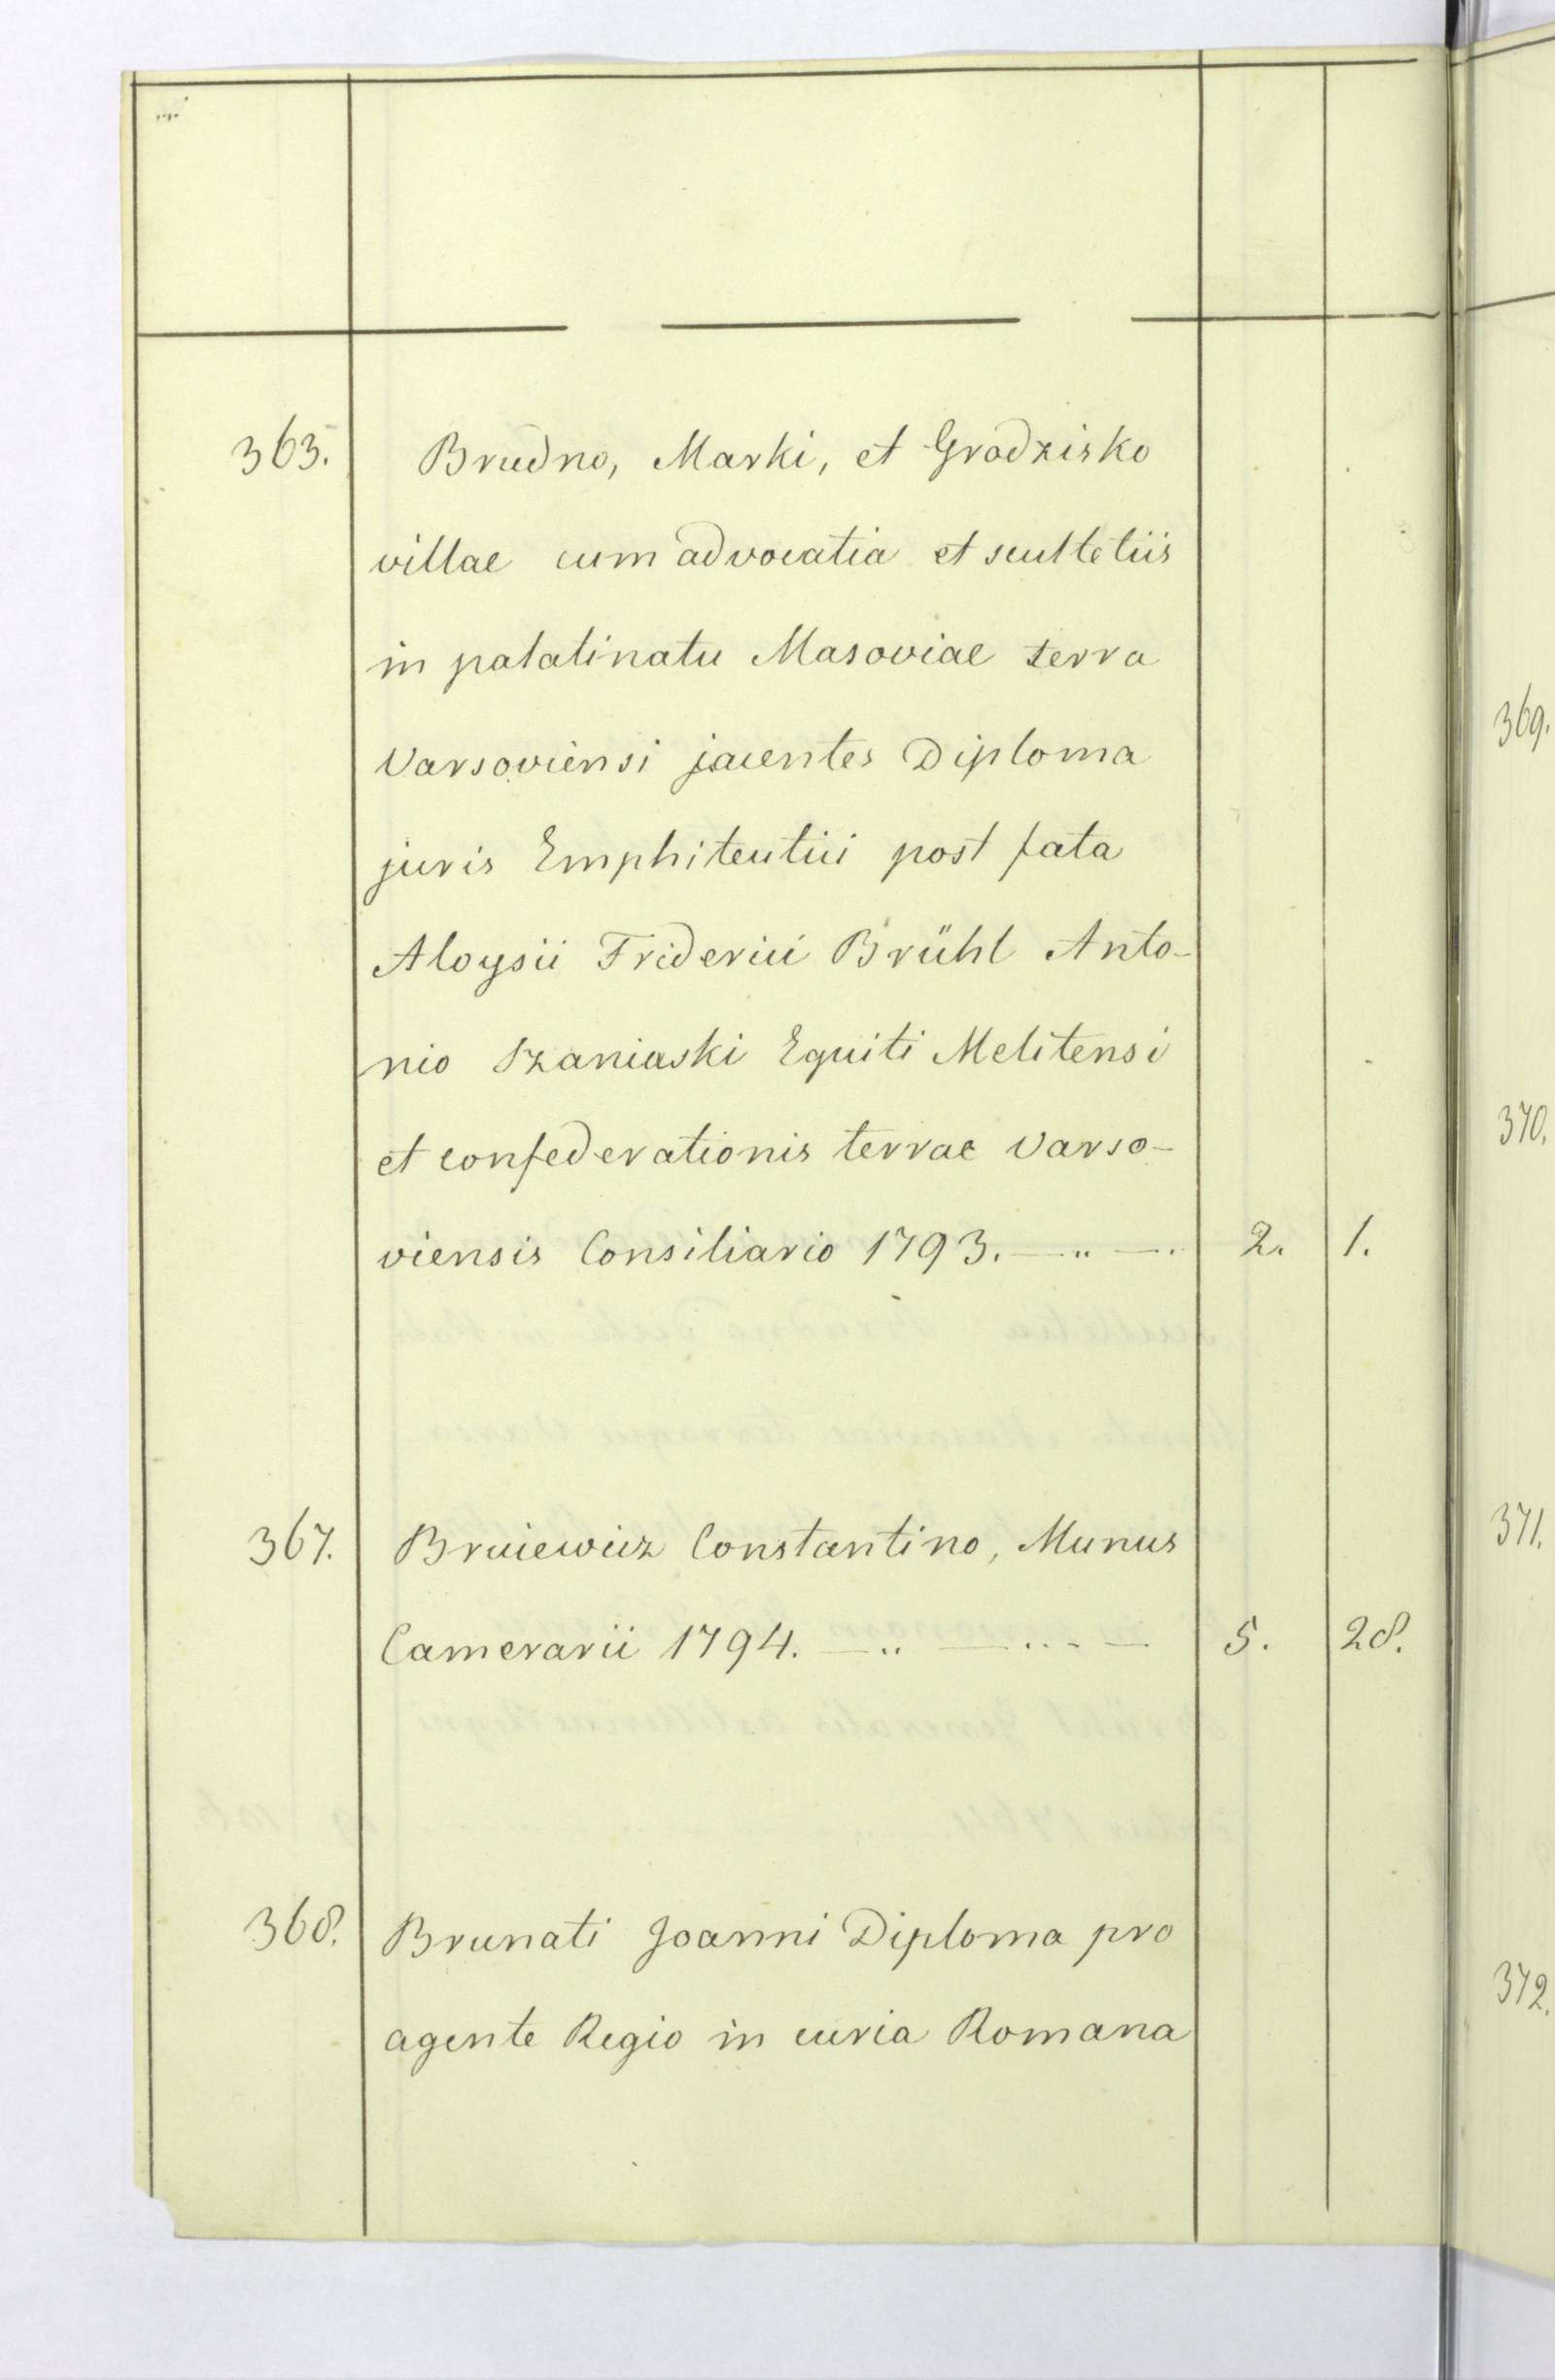 363. Brudno, Marki, et Grodzisko
villae cum advocatia et scultetiis
in palatinatu Masoviae terra
Varsoviensi jacentes Diploma
juris Emphiteutici post fata
Aloysii Friderici Brühl Anto-
nio Szaniaski Equiti Melitensi
et confederationis terrae Varso-
viensis Consiliario 1793. 2. 1.
367. Bruiewicz Constantino, Munus
Camerarii 1794. 5. 28.
368. Brunati Joanni Diploma pro
agente Regio in curia Romana
369.
370.
371.
372.